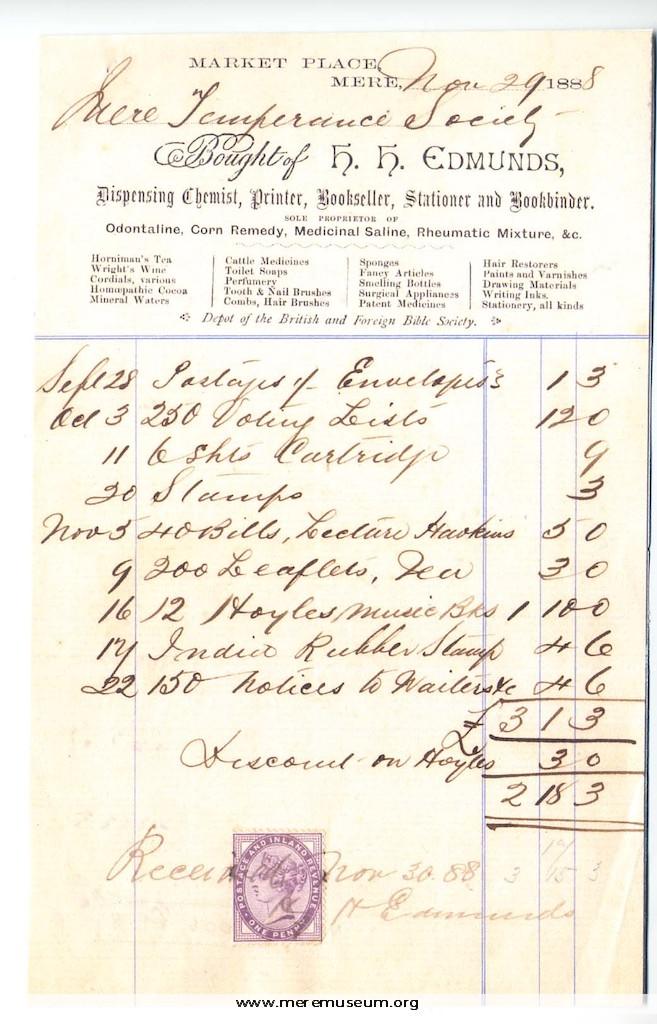 MARKET PLACE,
MERE, Nov 29 1888
Mere Temperance Society
Bought of H. H. EDMUNDS,
Dispensing Chemist, Printer, Bookseller, Stationer and Bookbinder.
SOLE PROPRIETOR OF
Odontaline, Corn Remedy, Medicinal Saline, Rheumatic Mixture, &c.
Horniman's Tea
Wright's Wine
Cordials, various
Homœopathic Cocoa
Mineral Waters
Cattle Medicines
Toilet Soaps
Perfumery
Tooth & Nail Brushes
Combs, Hair Brushes
Sponges
Fancy Articles
Smelling Bottles
Surgical Appliances
Patent Medicines
Hair Restorers
Paints and Varnishes
Drawing Materials
Writing Inks.
Stationery, all kinds
Depot of the British and Foreign Bible Society.
Sept 28 Postages Envelopes 1 3
Oct 3 250 Voting Lists 12 0
11 6 Shts Cartridge 9
20 Stamps 3
Nov 5 40 Bills, Lecture Hawkins 5 0
9 200 Leaflets, Tea 3 0
16 12 Hoyles Music Bks 1 10 0
17 India Rubber Stamp 4 6
22 150 Notices to Waiters &c 4 6
£ 3 1 3
Discount on Hoyles 3 0
2 18 3
Nov 30. 88
H Edmunds
POSTAGE AND INLAND REVENUE
ONE PENNY
www.meremuseum.org